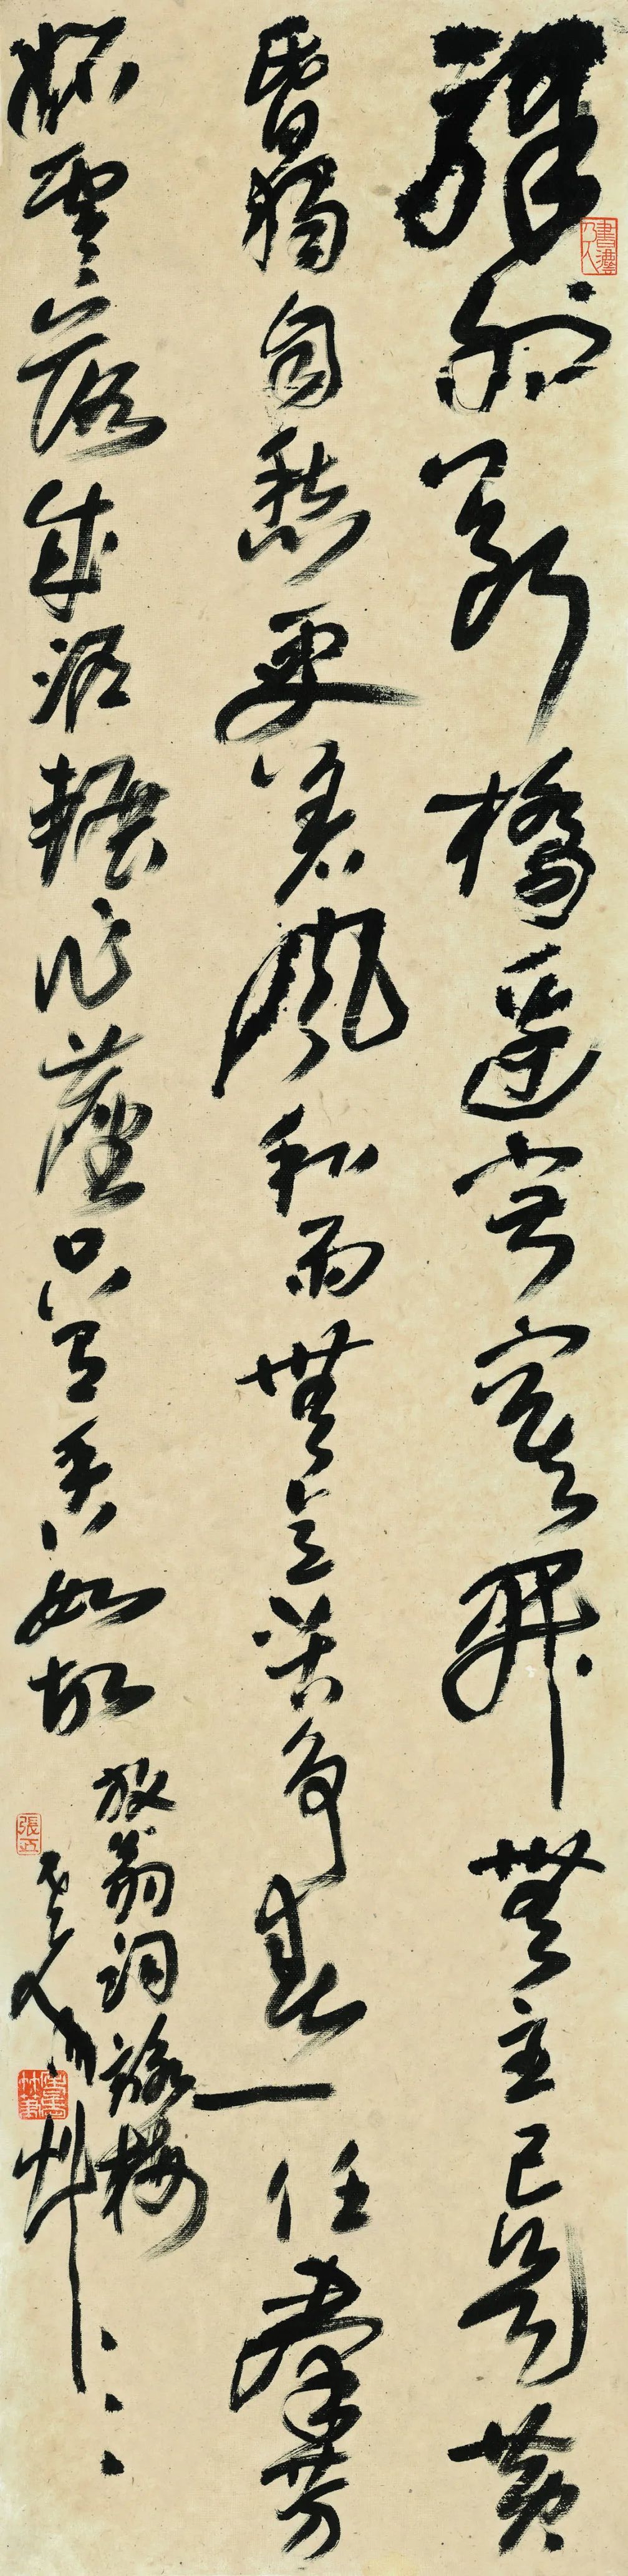 驛外斷橋邊寂寞開無主已是黃
昏獨自愁更著風和雨無意苦爭春一任羣芳
妬零落成泥輾作塵只有香如故
放翁詞詠梅
張正